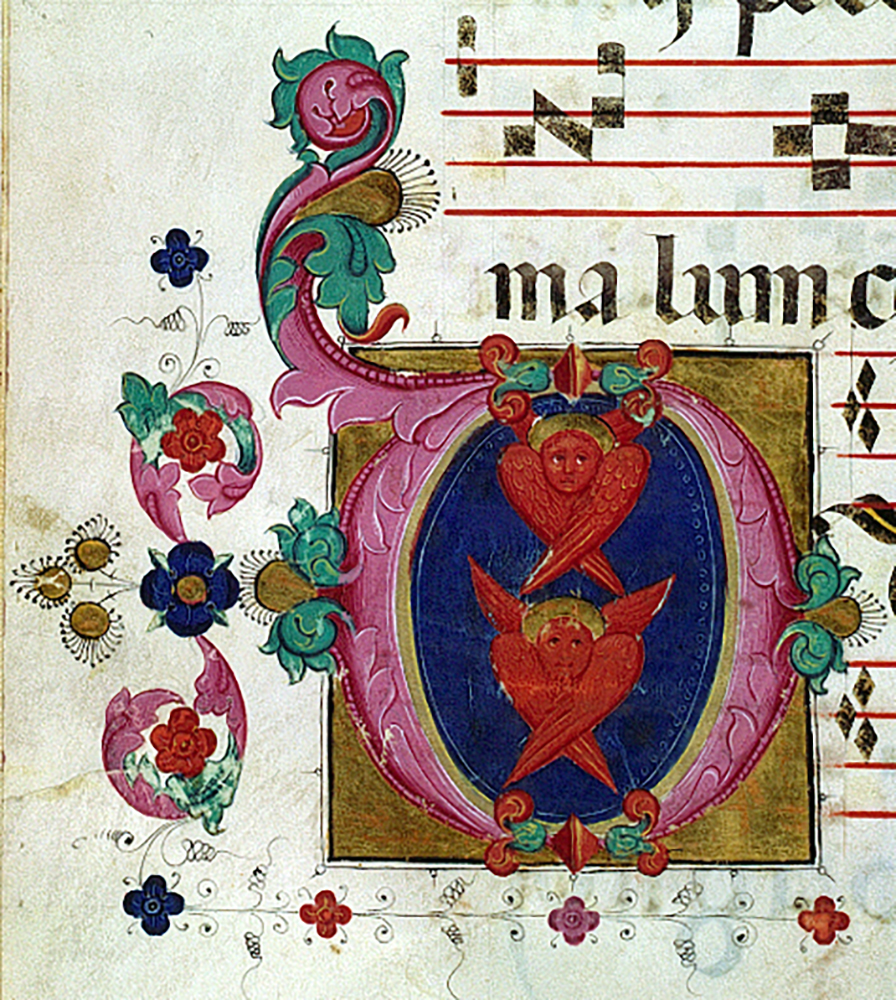 ma lum c
D